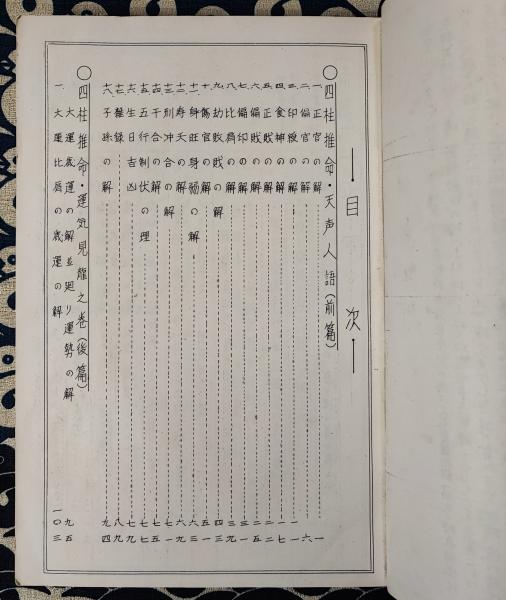 目次
○四柱推命・天声人語(前篇)
一、正官の解 一
二、偏官の解 六
三、印綬の解 一一
四、食神の解 一七
五、正敗の解 二二
六、偏敗の解 二五
七、偏印の解 三一
八、比肩の解 三九
九、劫敗敗の解 四三
十、傷官の解 五一
十一、身旺身弱の解 六三
十二、寿夭の解 六九
十三、刑冲合の解 七一
十四、干合の解 七五
十五、五行制伏の理 七七
十六、生日吉凶 七九
十七、雑録 八九
十八、子孫の解 九四
○四柱推命・運気見龍之巻(後篇)
大運歳運の解並廻り運勢の解 九五
一、大運比肩の歳運の解 一〇三